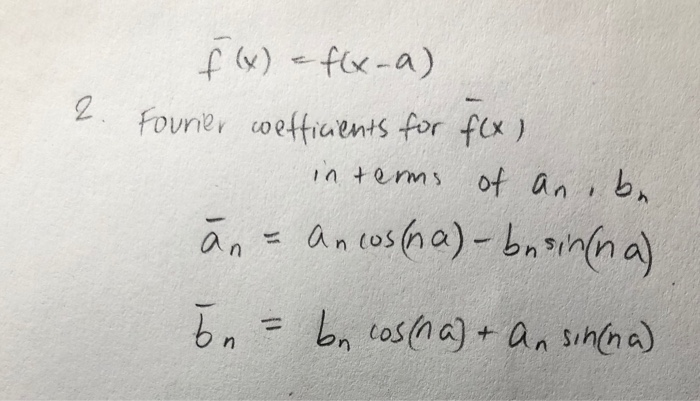 f̄(x) = f(x-a)
2. Fourier coefficients for f̄(x)
in terms of an, bn
ān = an cos(na) - bn sin(na)
b̄n = bn cos(na) + an sin(na)